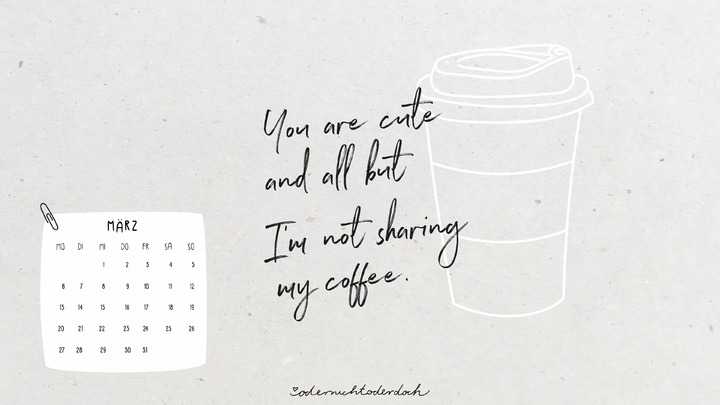 You are cute
and all but
I'm not sharing
my coffee.
MÄRZ
MO DI MI DO FR SA SO
1 2 3 4 5
6 7 8 9 10 11 12
13 14 15 16 17 18 19
20 21 22 23 24 25 26
27 28 29 30 31
odernichtoderdoch